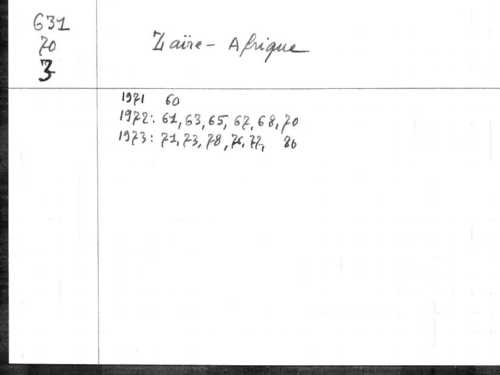 631
70
3
Zaïre - Afrique
1971 60
1972: 61, 63, 65, 67, 68, 70
1973: 71, 73, 78, 76, 77, 80